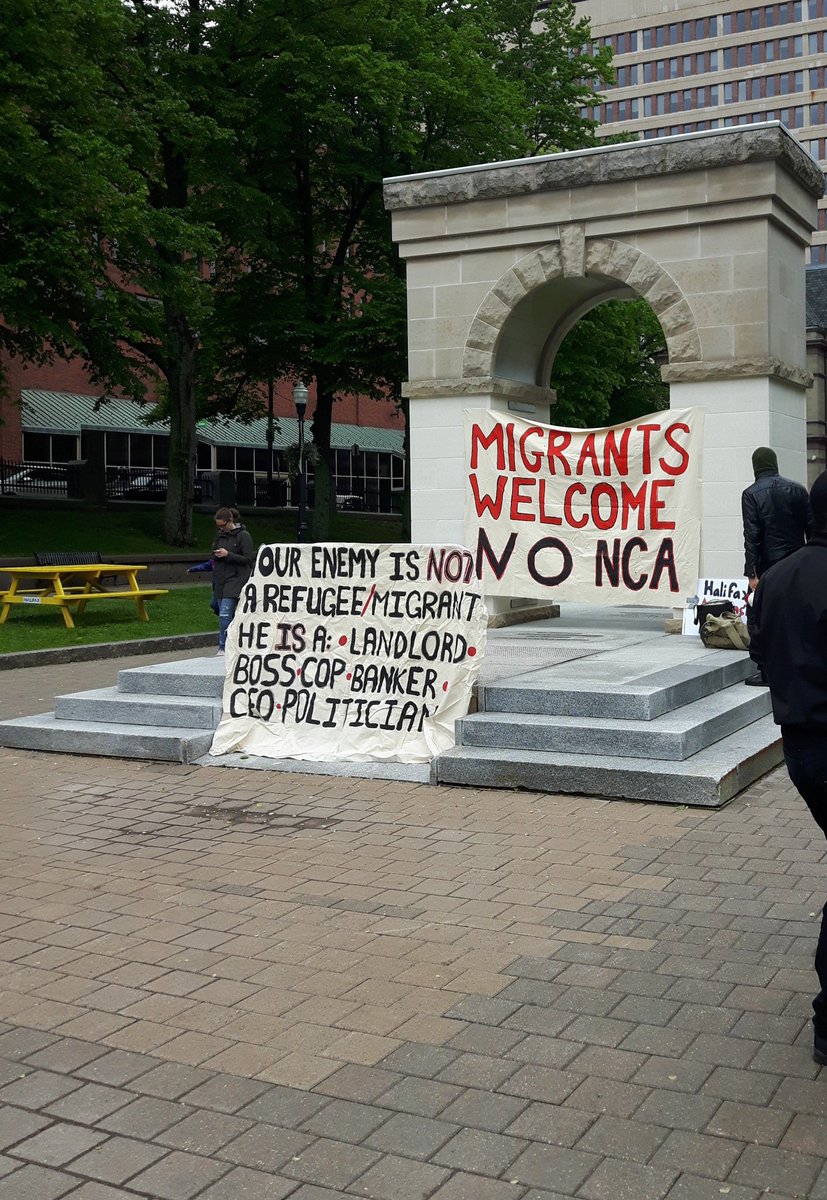 MIGRANTS
WELCOME
NO NCA
OUR ENEMY IS NOT
A REFUGEE/MIGRANT
HE IS A: • LANDLORD •
BOSS • COP • BANKER •
CEO • POLITICIAN
Halifax